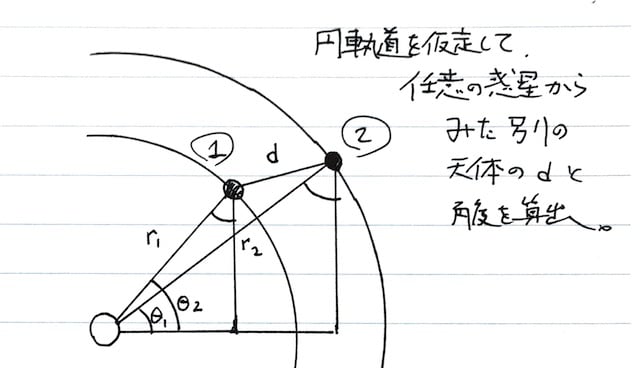 円軌道を仮定して、
任意の惑星から
みた別の
天体のdと
角度を算出。
①
d
②
r₁
r₂
θ₂
θ₁